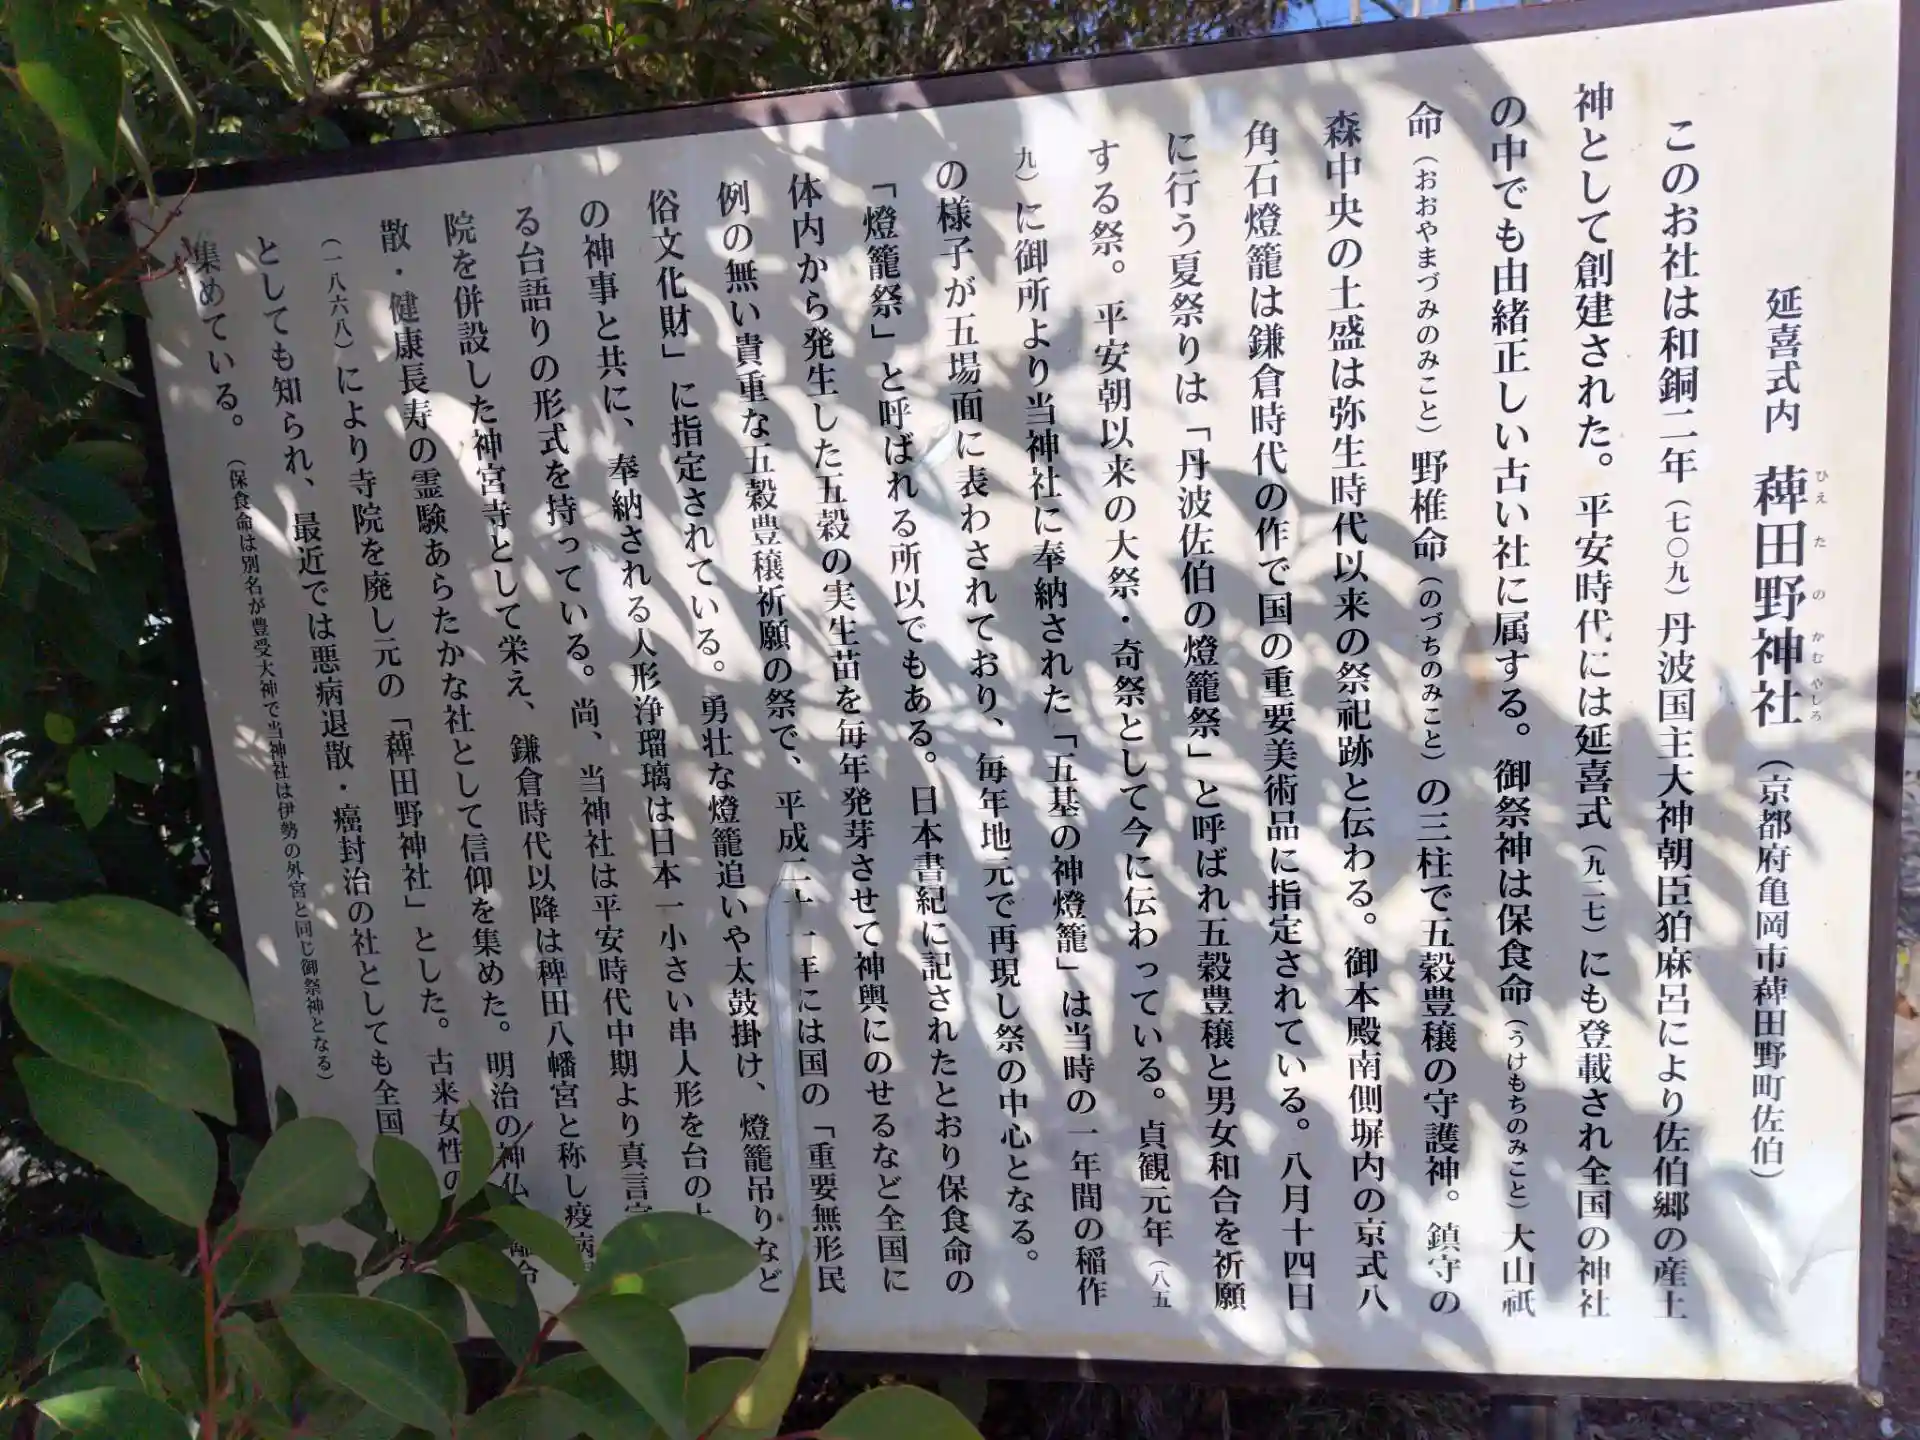 延喜式内 薭田野神社（京都府亀岡市薭田野町佐伯）
ひえ た の かむ やしろ
このお社は和銅二年（七〇九）丹波国主大神朝臣狛麻呂により佐伯郷の産土
神として創建された。平安時代には延喜式（九二七）にも登載され全国の神社
の中でも由緒正しい古い社に属する。御祭神は保食命（うけもちのみこと）大山祇
命（おおやまづみのみこと）野椎命（のづちのみこと）の三柱で五穀豊穣の守護神。鎮守の
森中央の土盛は弥生時代以来の祭祀跡と伝わる。御本殿南側塀内の京式八
角石燈籠は鎌倉時代の作で国の重要美術品に指定されている。八月十四日
に行う夏祭りは「丹波佐伯の燈籠祭」と呼ばれ五穀豊穣と男女和合を祈願
する祭。平安朝以来の大祭・奇祭として今に伝わっている。貞観元年（八五
九）に御所より当神社に奉納された「五基の神燈籠」は当時の一年間の稲作
の様子が五場面に表わされており、毎年地元で再現し祭の中心となる。
「燈籠祭」と呼ばれる所以でもある。日本書紀に記されたとおり保食命の
体内から発生した五穀の実生苗を毎年発芽させて神輿にのせるなど全国に
例の無い貴重な五穀豊穣祈願の祭で、平成二十一年には国の「重要無形民
俗文化財」に指定されている。勇壮な燈籠追いや太鼓掛け、燈籠吊りなど
の神事と共に、奉納される人形浄瑠璃は日本一小さい串人形を台の上
る台語りの形式を持っている。尚、当神社は平安時代中期より真言宗
院を併設した神宮寺として栄え、鎌倉時代以降は稗田八幡宮と称し疫病
散・健康長寿の霊験あらたかな社として信仰を集めた。明治の神仏
（一八六八）により寺院を廃し元の「薭田野神社」とした。古来女性の
としても知られ、最近では悪病退散・癌封治の社としても全国
集めている。（保食命は別名が豊受大神で当神社は伊勢の外宮と同じ御祭神となる）